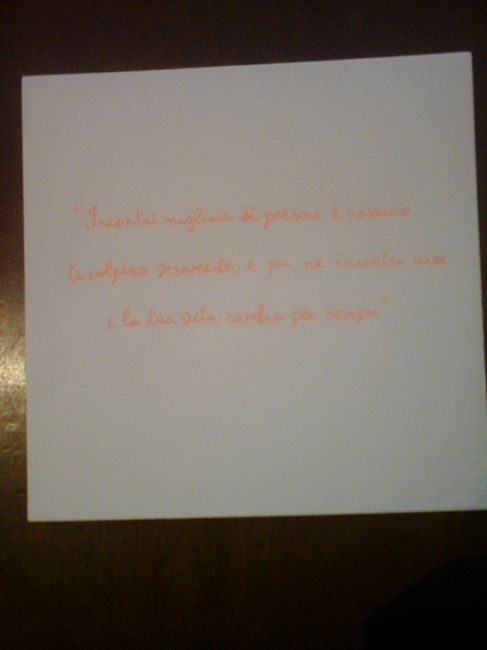 "Incontri migliaia di persone e nessuno
ti colpisce veramente, e poi ne incontri una
e la tua vita cambia per sempre"